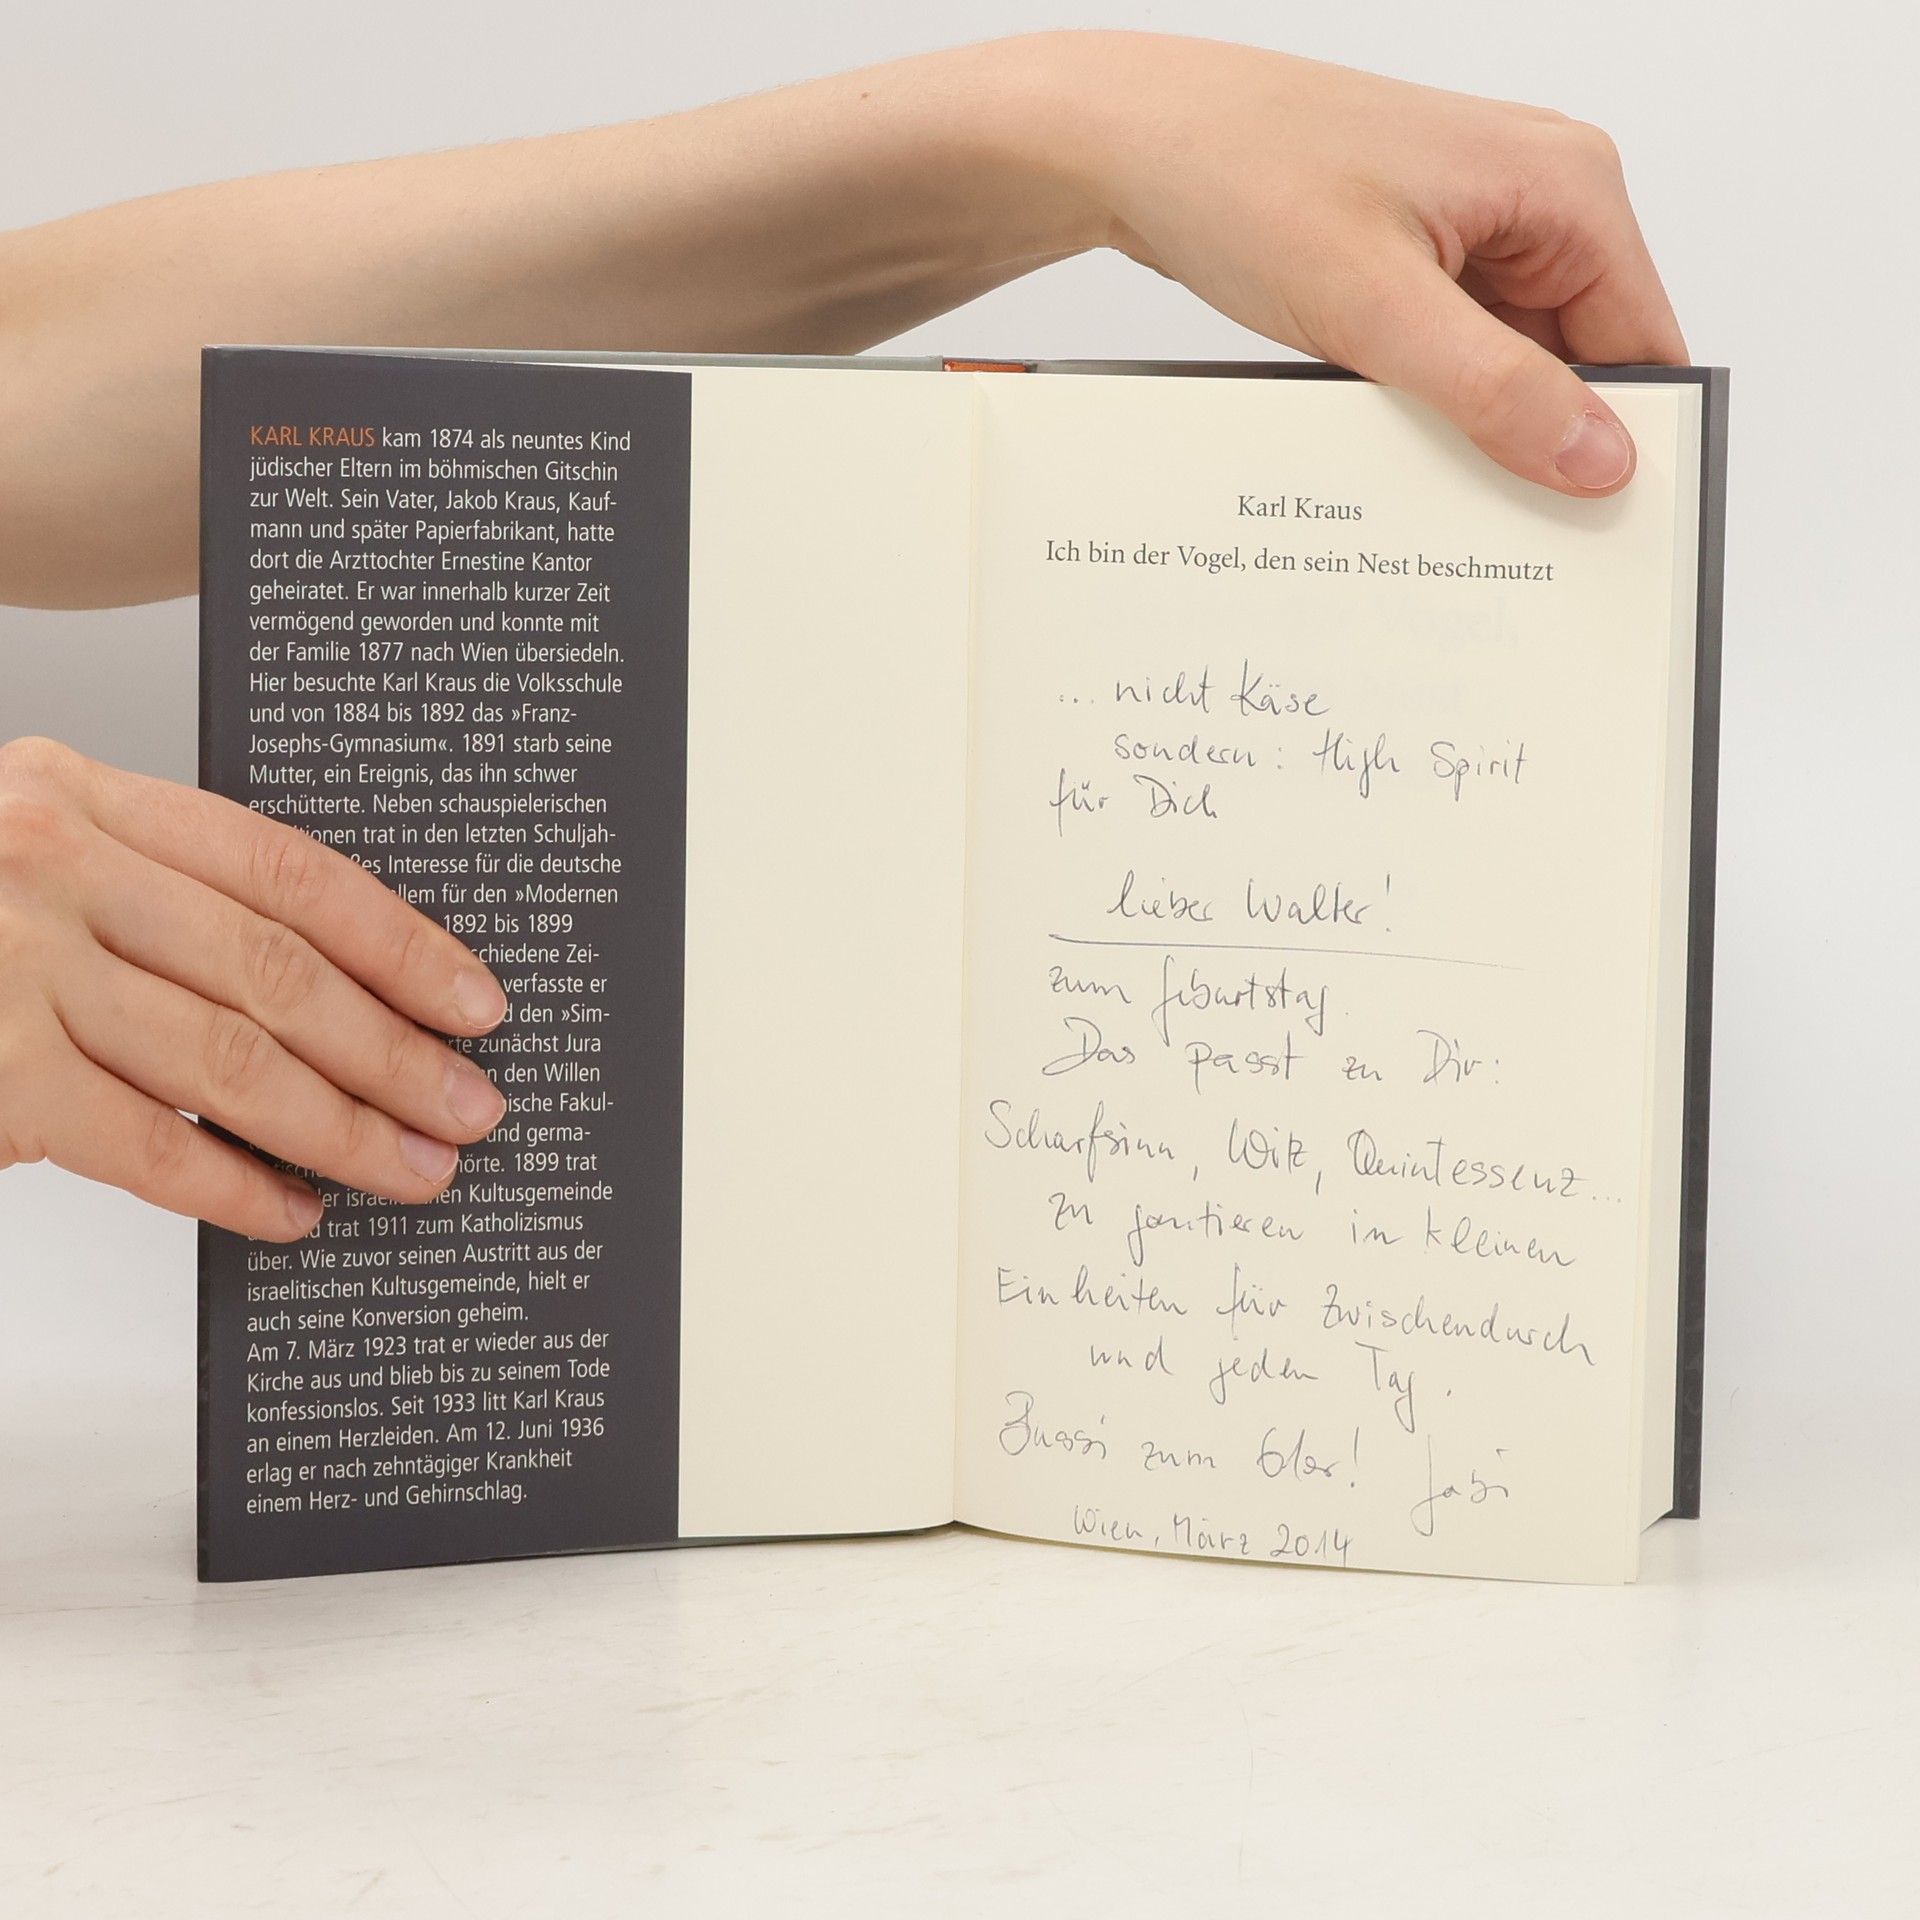 KARL KRAUS kam 1874 als neuntes Kind
jüdischer Eltern im böhmischen Gitschin
zur Welt. Sein Vater, Jakob Kraus, Kauf-
mann und später Papierfabrikant, hatte
dort die Arzttochter Ernestine Kantor
geheiratet. Er war innerhalb kurzer Zeit
vermögend geworden und konnte mit
der Familie 1877 nach Wien übersiedeln.
Hier besuchte Karl Kraus die Volksschule
und von 1884 bis 1892 das »Franz-
Josephs-Gymnasium«. 1891 starb seine
Mutter, ein Ereignis, das ihn schwer
erschütterte. Neben schauspielerischen
tionen trat in den letzten Schuljah-
ßes Interesse für die deutsche
llem für den »Modernen
1892 bis 1899
schiedene Zei-
verfasste er
d den »Sim-
rte zunächst Jura
n den Willen
ische Fakul-
und germa-
hörte. 1899 trat
er israe en Kultusgemeinde
d trat 1911 zum Katholizismus
über. Wie zuvor seinen Austritt aus der
israelitischen Kultusgemeinde, hielt er
auch seine Konversion geheim.
Am 7. März 1923 trat er wieder aus der
Kirche aus und blieb bis zu seinem Tode
konfessionslos. Seit 1933 litt Karl Kraus
an einem Herzleiden. Am 12. Juni 1936
erlag er nach zehntägiger Krankheit
einem Herz- und Gehirnschlag.
Karl Kraus
Ich bin der Vogel, den sein Nest beschmutzt
... nicht Käse
sondern: High Spirit
für Dich
lieber Walter!
zum Geburtstag.
Das passt zu Dir:
Scharfsinn, Witz, Quintessenz...
zu goutieren in kleinen
Einheiten für Zwischendurch
und jeden Tag.
Bussi zum 60er! Gabi
Wien, März 2014